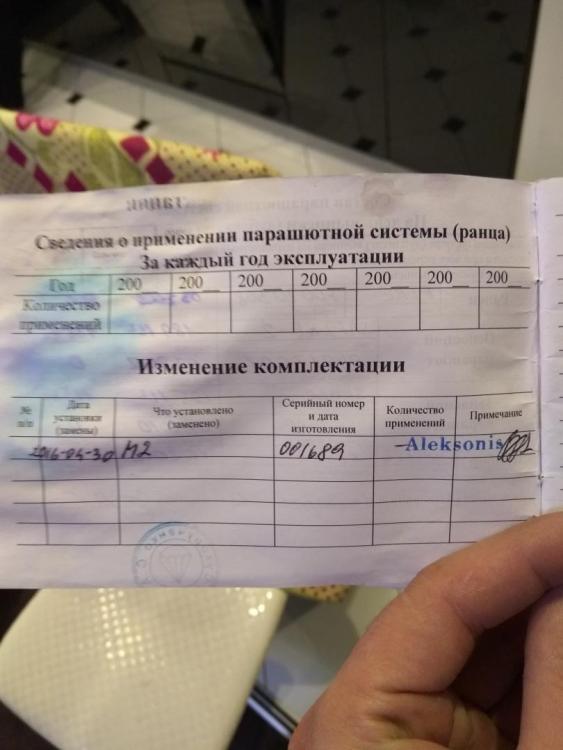 Сведения о применении парашютной системы (ранца)
За каждый год эксплуатации
Год 200__ 200__ 200__ 200__ 200__ 200__ 200__
Количество
применений
Изменение комплектации
№
п/п
Дата
установки
(замены)
Что установлено
(заменено)
Серийный номер
и дата
изготовления
Количество
применений
Примечание
2016-04-30 M2 001689 Aleksonis